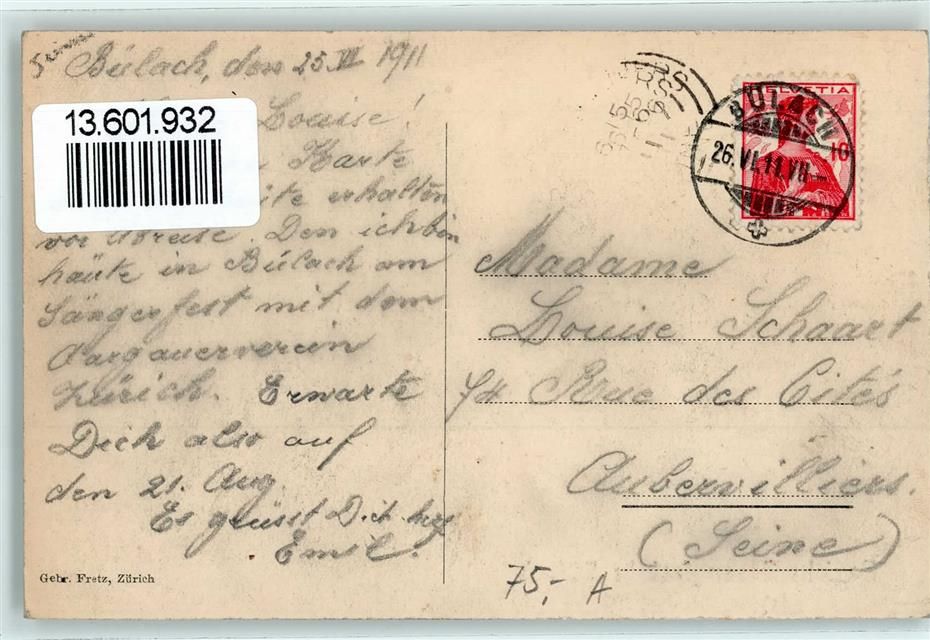 Bülach, den 25. VI 1911
13.601.932
Louise!
Karte
erhalten
vor Abreise. Den ich bin
häute in Bülach am
Sängerfest mit dem
Aargauerverein
Zürich. Erwarte
Dich also auf
den 21. Aug.
Es grüsst Dich herz
Emil.
Gebr. Fretz, Zürich
HELVETIA
10
BÜLACH
26.VI.11.VII
Madame
Louise Schaart
Rue des Cités
Aubervilliers.
(Seine)
75,- A